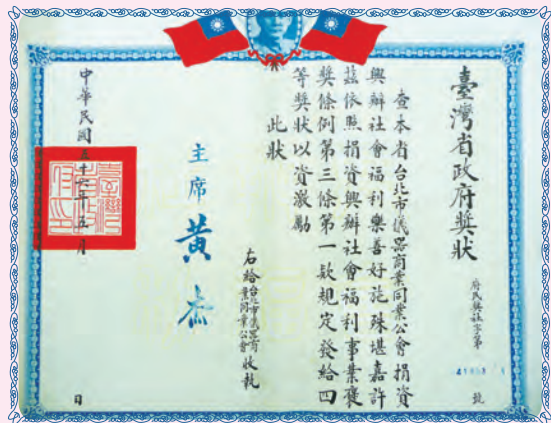 臺灣省政府獎狀
府民獎社字第 號
查本省台北市儀器商業同業公會捐資
興辦社會福利樂善好施殊堪嘉許
茲依照捐資興辦社會福利事業褒
獎條例第三條第一款規定發給四
等獎狀以資激勵
此狀
右給台北市儀器商業同業公會收執
主席 黃杰
中華民國五十六年五月 日